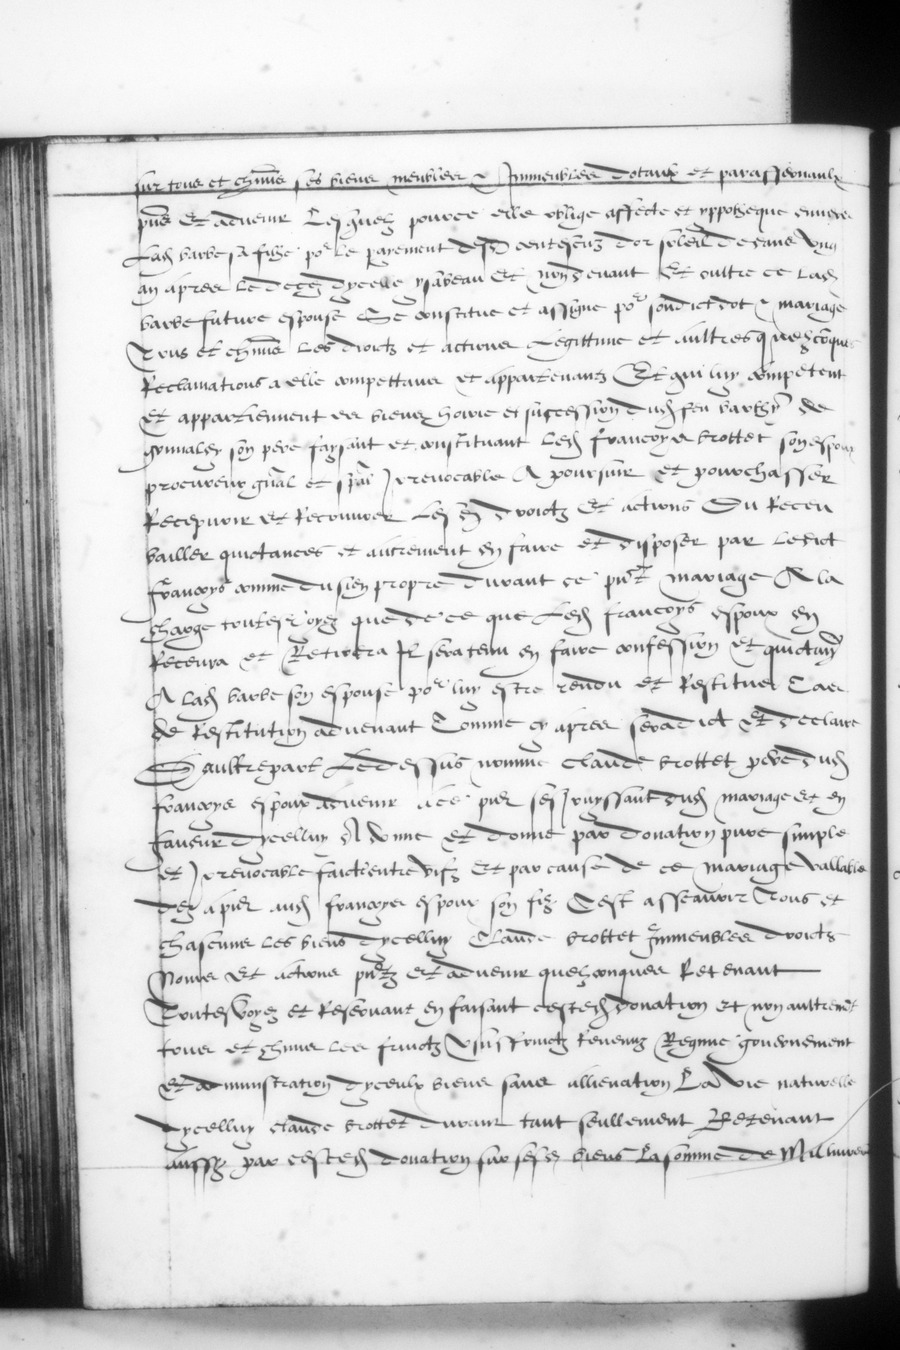 sur tous et chūns ses biens meubles & Immeubles dotaulx et parafrenaulx
pn̄s Et advenir Lesq̄uelz pource elle oblige affecte et yppotheque envers
Lad barbe sa fille por le payement desd centescuz dor soleil dedans ung
an apres le deces dycelle ysabeau Et non devant Et oultre ce lad
barbe future espouse Se constitue et assigne por sondict dot & mariage
Tous et chūns les droictz et actions Legittime et aultres quelzcōques
Reclamations a elle compettans et appartenantz Et qui luy cōmpetent
Et appartiennent es biens hoirie et succession dud feu barthy de
son pere faysant et constituant led francoys brottet son espoux
procureur gn̄al et spāl Irrevocable A poursuir et pourchasser
Recepvoir et Recouvrer Lesd droictz Et actions Du Receu
bailler quictances et autrement en faire et disposer par ledict
francoys comme du sien propre durant ce pn̄t mariage A la
charge toutesvoyes que de ce que Led francoys espoux en
Recevra et Retirera Il sera tenu en faire confession et quictan̄
A lad barbe son espouse por luy estre rendu et Restitue Cas
de Restitution advenant Comme cy apres sera dict Et declaire
Daultrepart Ledessus nomme Claude brottet pere dud
francoys espoux advenir a ce pn̄t sesjouyssant dud mariage et en
faveur dycelluy A donne et donne par donation pure simple
et Irrevocable faicte entre vifz et par cause de ce mariage vallable
des a pn̄t aud francoys espoux son filz Cest asseavoir Tous et
chascuns les biens dycelluy Claude brottet Immeubles droictz
Noms et actions pn̄tz et advenir quelzconques Retenant
Toutesvoyes et Reservant en faisant cested donation et non aultremēt
tous et chūns les fruictz usuffruictz Revenuz Regime gouvernement
Et administration dyceulx biens sans allienation La vie naturelle
dycelluy claude brottet durant tant seullement Retenant
aussy par cested donation sur sesd biens La somme de Mil livres